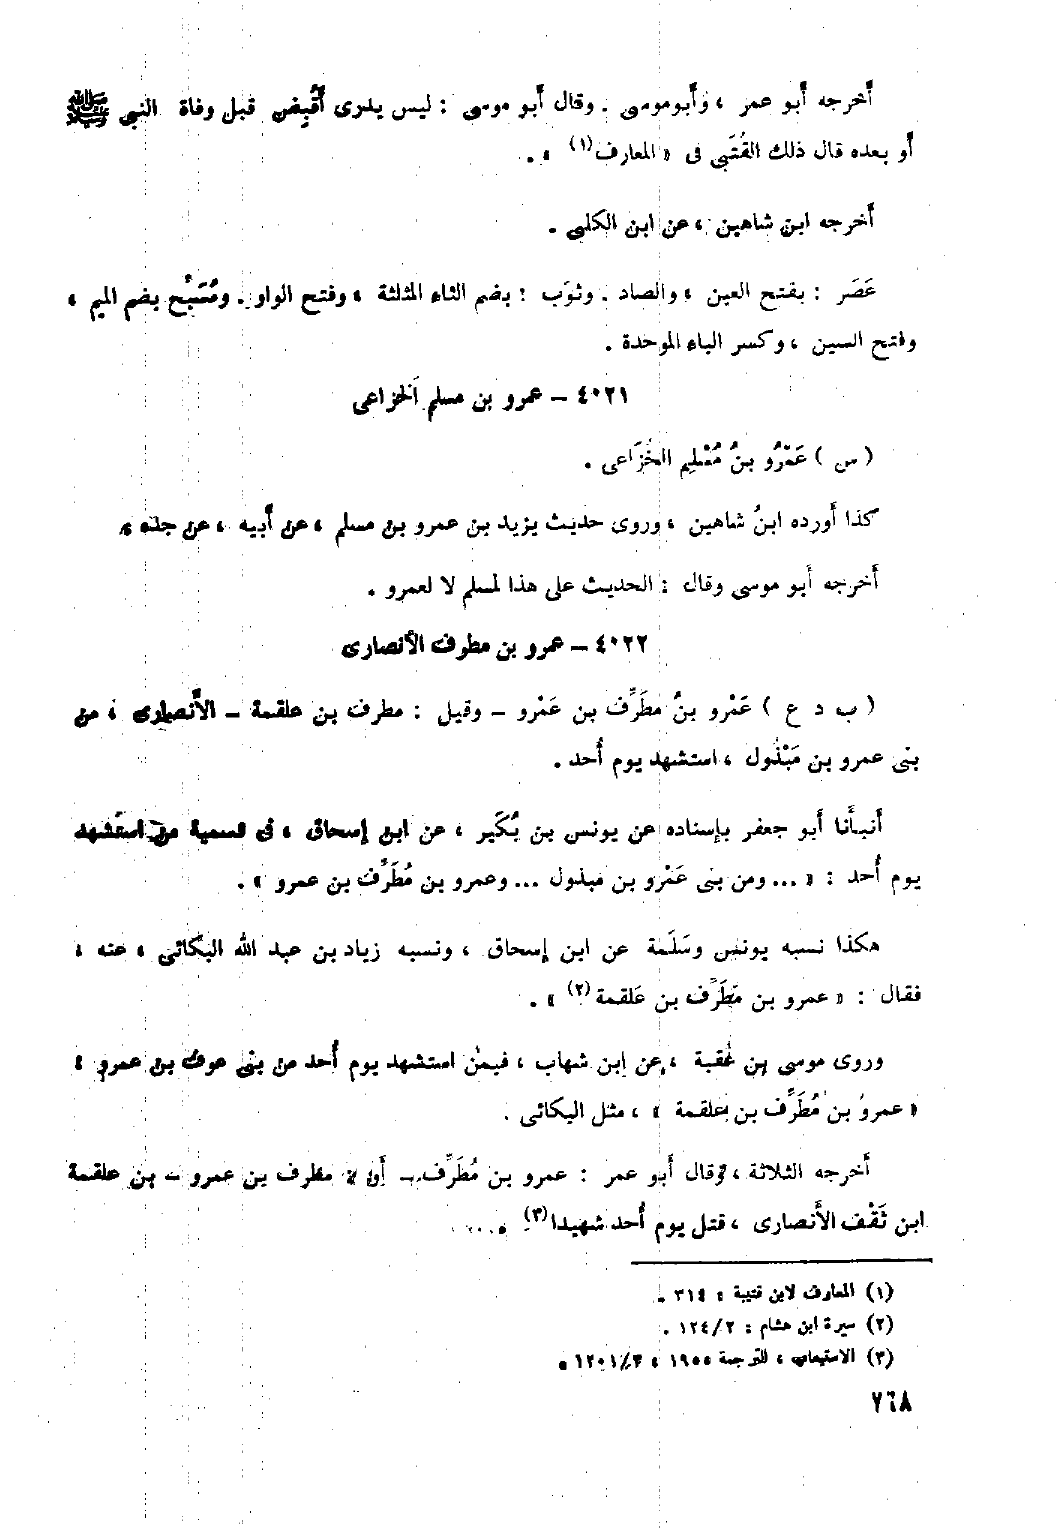 أخرجه أبو عمر ، وأبو موسى . وقال أبو موسى : ليس يدرى أقُبِض قبل وفاة النبى ﷺ
أو بعده قال ذلك القُتَبى فى « المعارف (١) » .
أخرجه ابن شاهين ، عن ابن الكلبى .
عَصَر : بفتح العين ، والصاد . وثوَب : بضم الثاء المثلثة ، وفتح الواو . ومُسَبِّح بضم الميم ،
وفتح السين ، وكسر الباء الموحدة .
٤٠٢١ – عمرو بن مسلم الخزاعى
( س ) عَمْرُو بنُ مُسْلِم الخُزَاعى .
كذا أورده ابنُ شاهين ، وروى حديث يزيد بن عمرو بن مسلم ، عن أبيه ، عن جده .
أخرجه أبو موسى وقال : الحديث على هذا لمسلم لا لعمرو .
٤٠٢٢ – عمرو بن مطرف الأنصارى
( ب د ع ) عَمْرو بنُ مُطَرِّف بن عَمْرو – وقيل : مطرف بن علقمة – الأنصارى ، من
بنى عمرو بن مَبْذُول ، استشهد يوم أُحد .
أنبأَنا أبو جعفر بإسناده عن يونس بن بُكَير ، عن ابن إسحاق ، فى تسمية من استشهد
يوم أُحد : « ... ومن بنى عَمْرو بن مبذول ... وعمرو بن مُطَرِّف بن عمرو » .
هكذا نسبه يونس وسَلَمة عن ابن إسحاق ، ونسبه زياد بن عبد الله البكَّائى ، عنه ،
فقال : « عمرو بن مُطَرِّف بن عَلقمة (٢) » .
وروى موسى بن عُقبة ، عن ابن شهاب ، فيمن استشهد يوم أُحد من بنى عوف بن عمرو ،
« عمرو بن مُطَرِّف بن علقمة » ، مثل البكائى .
أخرجه الثلاثة ، وقال أبو عمر : عمرو بن مُطَرِّف – أو : مطرف بن عمرو – بن علقمة
ابن ثَقْف الأَنصارى ، قتل يوم أُحد شهيدا (٣) .
(١) المعارف لابن قتيبة : ٣١٤ .
(٢) سيرة ابن هشام : ١٢٤/٢ .
(٣) الاستيعاب ، الترجمة ١٩٥٥ : ١٢٠١/٣ .
٧٦٨